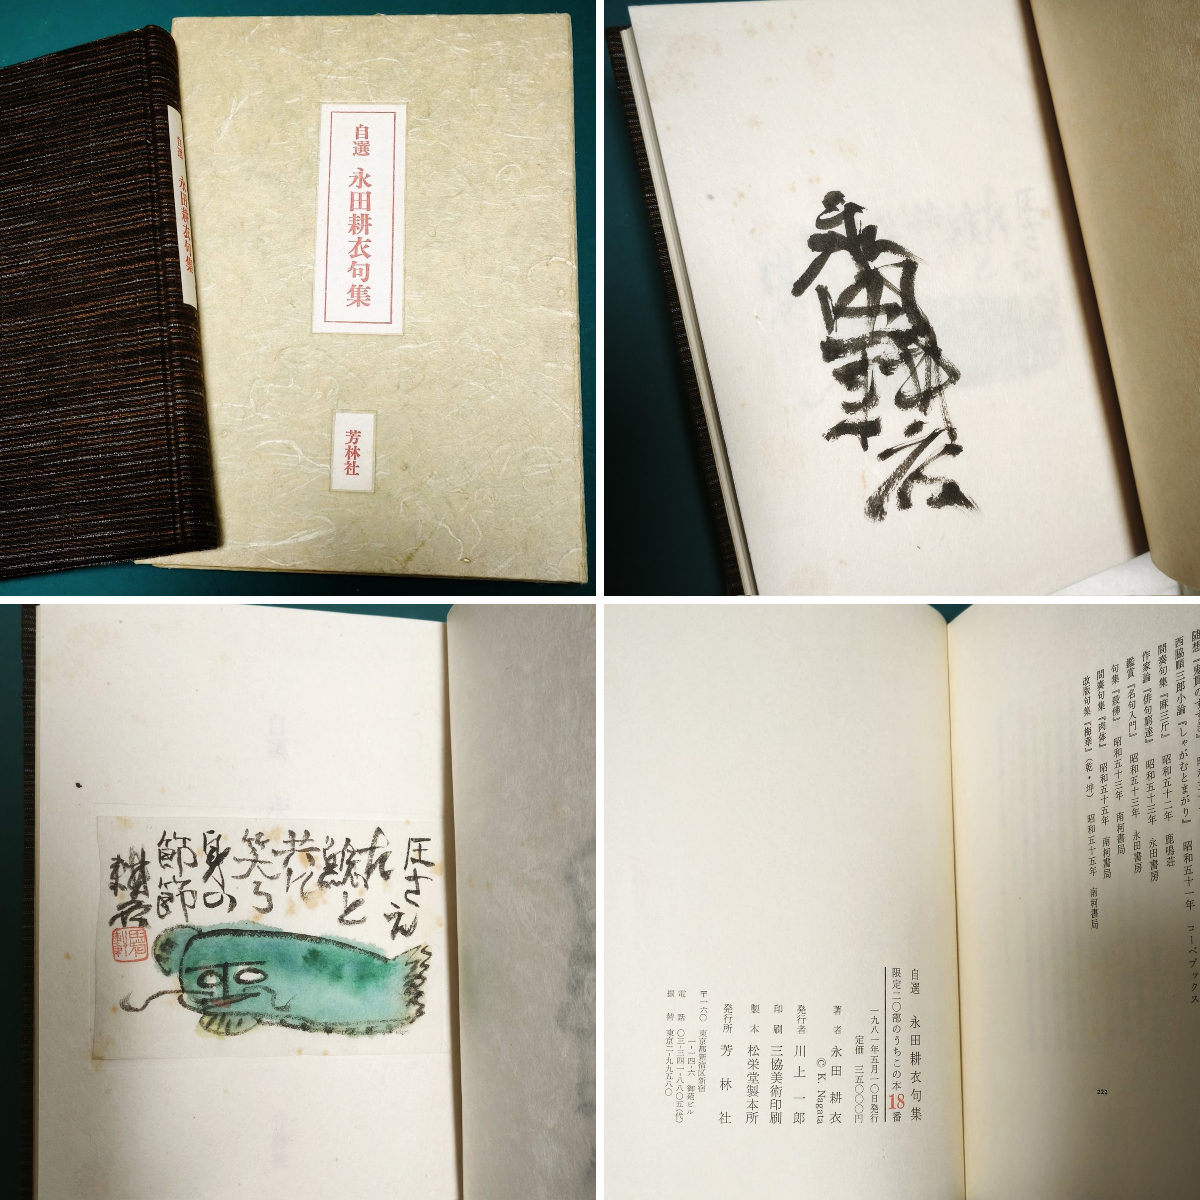 自選 永田耕衣句集
自選 永田耕衣句集
芳林社
永田耕衣
圧さえ
鯰と
共に
笑う
身の
節節
耕衣
西脇順三郎小論『しゃがむとまがり』 昭和五十一年 コーベブックス
間奏句集『麻三斤』 昭和五十二年 鹿鳴荘
作家論『俳句窮達』 昭和五十三年 永田書房
鑑賞『名句入門』 昭和五十三年 永田書房
句集『殺佛』 昭和五十三年 南柯書局
間奏句集『肉体』 昭和五十五年 南柯書局
改版句集『梅華』(乾・坤) 昭和五十五年 南柯書局
222
自選 永田耕衣句集
限定二〇部のうちこの本18番
一九八一年五月一〇日発行
定価 三五〇〇〇円
著者 永田耕衣
© K. Nagata
発行者 川上一郎
印刷 三協美術印刷
製本 松栄堂製本所
発行所 芳林社
〒一六〇 東京都新宿区新宿
一-一四-六 御苑ビル
電話 〇三-三四一-八八〇五(代)
振替 東京二-九九五八〇